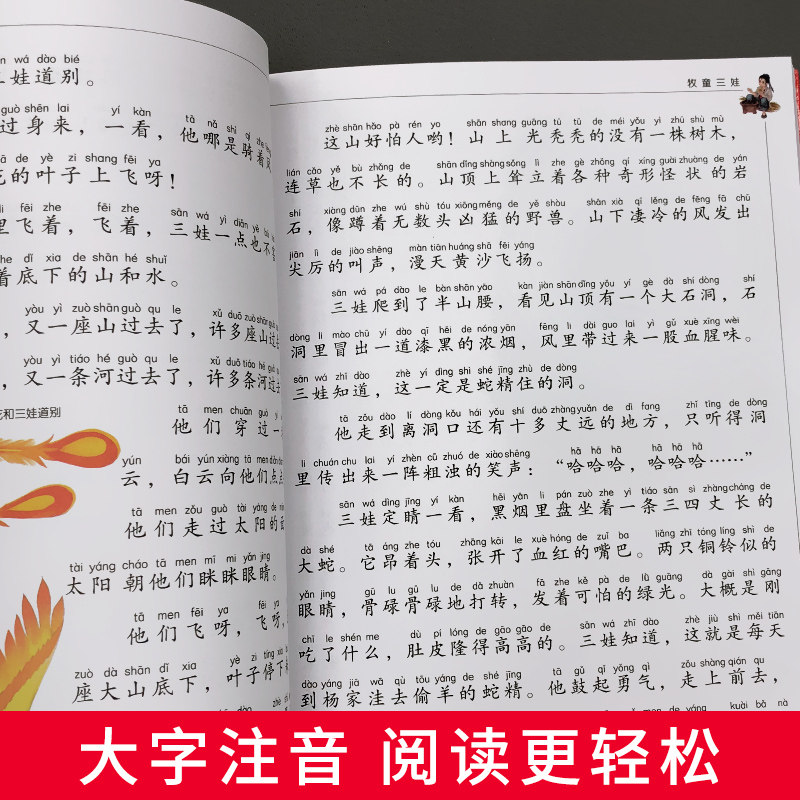 n wá dào bié
娃道别。
guò shēn lai yí kàn tā nǎ shì qí zhe
过身来，一看，他哪是骑着
de yè zi shang fēi ya
的叶子上飞呀！
lǐ fēi zhe fēi zhe sān wá yì diǎn yě
里飞着，飞着，三娃一点也不
zhe dǐ xia de shān hé shuǐ
着底下的山和水。
yòu yí zuò shān guò qu le xǔ duō zuò shān guò
，又一座山过去了，许多座山过去
yòu yì tiáo hé guò qu le xǔ duō tiáo hé guò
，又一条河过去了，许多条河过去
花和三娃道别
tā men chuān guò yí
他们穿过一
yún bái yún xiàng tā men diǎn
云，白云向他们点
tā men zǒu guò tài yáng de
他们走过太阳的
tài yáng cháo tā men mī mi yǎn jing
太阳朝他们眯眯眼睛。
tā men fēi ya
他们飞呀，飞呀，
zuò dà shān dǐ xia yè zi tíng xia
座大山底下，叶子停下
牧童三娃
zhè shān hǎo pà rén yo shān shang guāng tū tū de méi yǒu yì zhū shù mù
这山好怕人哟！山上光秃秃的没有一株树木，
lián cǎo yě bù zhǎng de shān dǐng shàng sǒng lì zhe gè zhǒng qí xíng guài zhuàng de yán
连草也不长的。山顶上耸立着各种奇形怪状的岩
shí xiàng dūn zhe wú shù tóu xiōng měng de yě shòu shān xià qī lěng de fēng fā chū
石，像蹲着无数头凶猛的野兽。山下凄冷的风发出
jiān lì de jiào shēng màn tiān huáng shā fēi yáng
尖厉的叫声，漫天黄沙飞扬。
sān wá pá dào le bàn shān yāo kàn jiàn shān dǐng yǒu yí gè dà shí dòng shí
三娃爬到了半山腰，看见山顶有一个大石洞，石
dòng lǐ mào chū yí dào qī hēi de nóng yān fēng li dài guo lai yì gǔ xuè xīng wèi
洞里冒出一道漆黑的浓烟，风里带过来一股血腥味。
sān wá zhī dào zhè yí dìng shì shé jīng zhù de dòng
三娃知道，这一定是蛇精住的洞。
tā zǒu dào lí dòng kǒu hái yǒu shí duō zhàng yuǎn de dì fang zhǐ tīng de dòng
他走到离洞口还有十多丈远的地方，只听得洞
lǐ chuán chu lai yí zhèn cū zhuó de xiào shēng hā hā hā hā hā hā
里传出来一阵粗浊的笑声：“哈哈哈，哈哈哈……”
sān wá dìng jīng yí kàn hēi yān lǐ pán zuò zhe yì tiáo sān sì zhàng cháng de
三娃定睛一看，黑烟里盘坐着一条三四丈长的
dà shé tā áng zhe tóu zhāng kāi le xuè hóng de zuǐ ba liǎng zhī tóng líng shì de
大蛇。它昂着头，张开了血红的嘴巴。两只铜铃似的
yǎn jing gū lu gū lu de dǎ zhuàn fā zhe kě pà de lǜ guāng dà gài shì gāng
眼睛，骨碌骨碌地打转，发着可怕的绿光。大概是刚
chī le shén me dù pí lóng de gāo gāo de sān wá zhī dào zhè jiù shì měi tiān
吃了什么，肚皮隆得高高的。三娃知道，这就是每天
dào yáng jiā wā qù tōu yáng de shé jīng tā gǔ qǐ yǒng qì zǒu shàng qián qu
到杨家洼去偷羊的蛇精。他鼓起勇气，走上前去，
大字注音 阅读更轻松